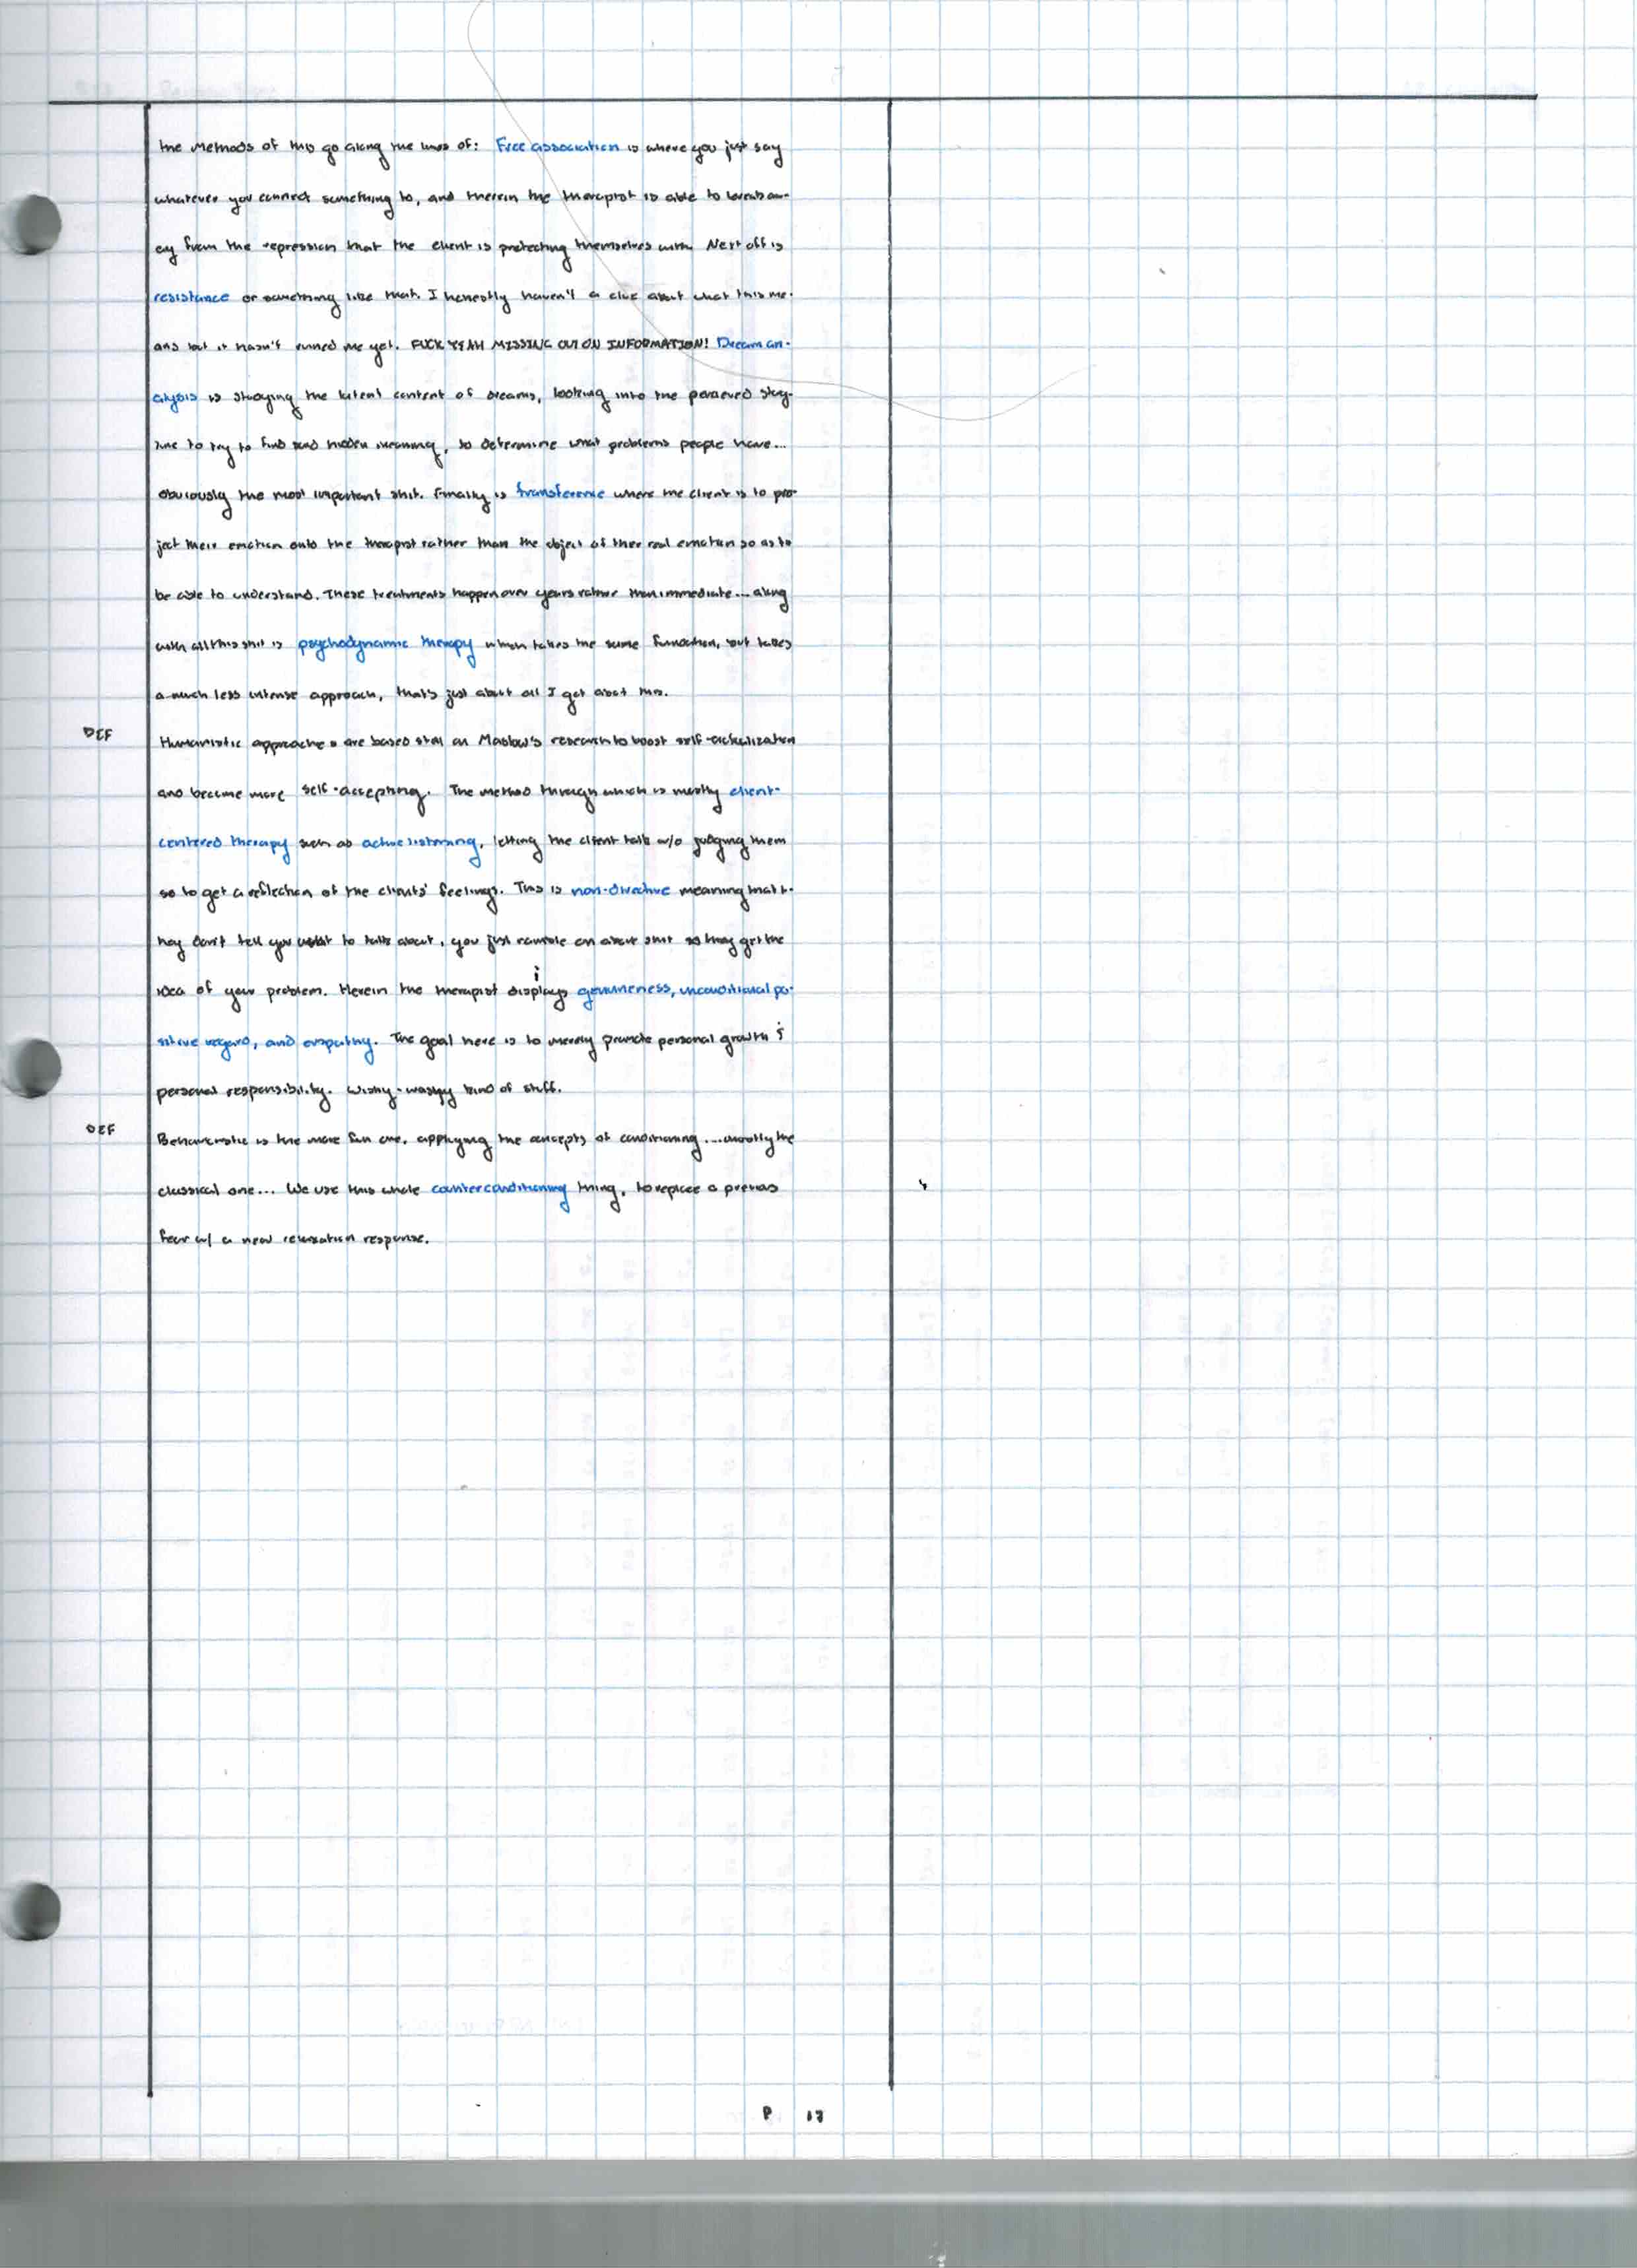 the methods of this go along the lines of: Free association is where you just say
whatever you connect something to, and therein the therapist is able to break aw-
ay from the repression that the client is protecting themselves with. Next off is
resistance or something like that. I honestly haven't a clue about what this me-
ans but it hasn't ruined me yet. FUCK YEAH MISSING OUT ON INFORMATION! Dream an-
alysis is studying the latent content of dreams, looking into the perceived story-
line to try to find hidden meaning, to determine what problems people have...
obviously the most important shit. Finally is transference where the client is to pro-
ject their emotion onto the therapist rather than the object of their real emotion so as to
be able to understand. These treatments happen over years rather than immediate... along
with all this shit is psychodynamic therapy which takes the same function, but takes
a much less intense approach, that's just about all I get about this.
DEF
Humanistic approaches are based on Maslow's research to boost self-actualization
and become more self-accepting. The method through which is mostly client-
centered therapy such as active listening, letting the client talk w/o judging them
so to get a reflection of the clients' feelings. This is non-directive meaning that t-
hey don't tell you what to talk about, you just ramble on about shit so they get the
idea of your problem. Herein the therapist displays genuineness, unconditional po-
sitive regard, and empathy. The goal here is to merely promote personal growth &
personal responsibility. Wishy-washy kind of stuff.
DEF
Behavioristic is the more fun one, applying the concepts of conditioning... mostly the
classical one... We use this whole counterconditioning thing, to replace a previous
fear w/ a new relaxation response.
P 17